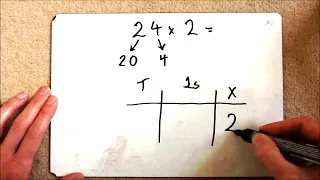 24 x 2 =
20 4
T 1s x
2